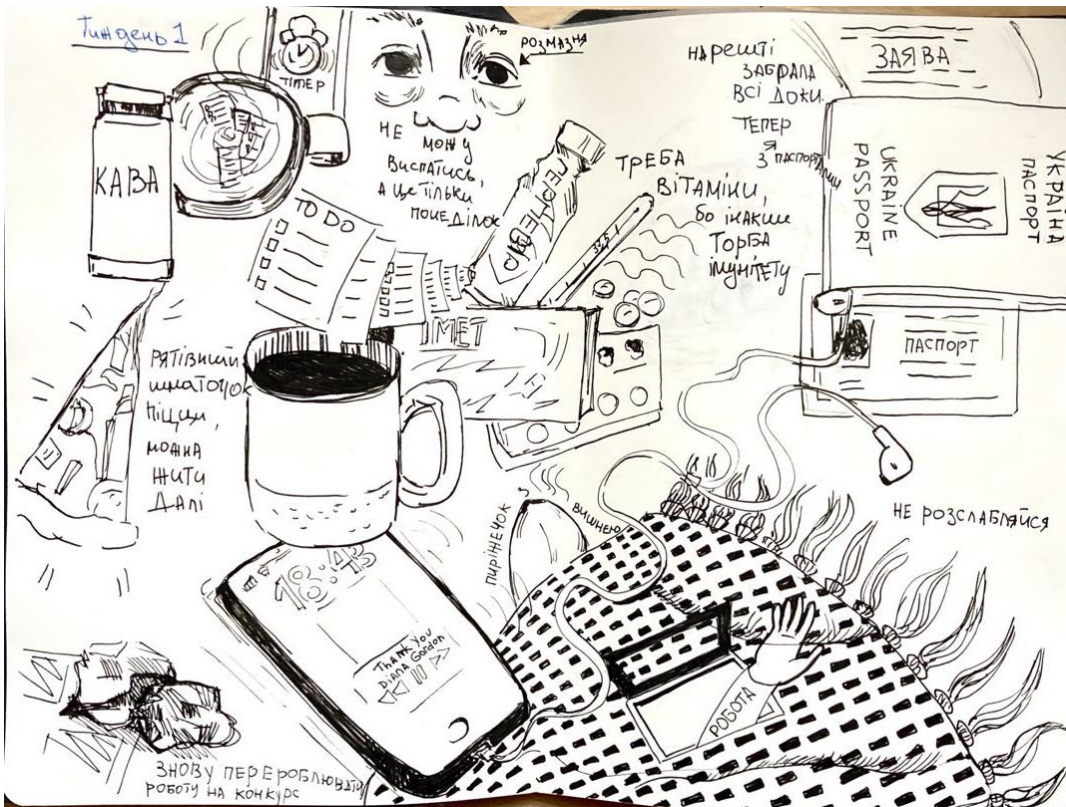 Тиждень 1
ТІМЕР
РОЗМАЗНЯ
НЕ МОЖУ
ВИСПАТИСЬ,
А ЦЕ ТІЛЬКИ
ПОНЕДІЛОК
КАВА
TO DO
ПЕРЦЕВО
36,6
ТРЕБА
ВІТАМІНИ,
бо інакше
ТОРБА
імунітету
НАРЕШТІ
ЗАБРАЛА
ВСІ ДОКИ.
ТЕПЕР
Я
З ПАСПОРТАМИ
ЗАЯВА
УКРАЇНА
ПАСПОРТ
UKRAINE
PASSPORT
ПАСПОРТ
РЯТІВНИЙ
ШМАТОЧОК
ПІЦЦИ,
МОЖНА
ЖИТИ
ДАЛІ
ІМЕТ
18:43
Thank You
Diana Gordon
ПИРІЖЕЧОК З ВИШНЕЮ
НЕ РОЗСЛАБЛЯЙСЯ
РОБОТА
ЗНОВУ ПЕРЕРОБЛЮВАТИ
РОБОТУ НА КОНКУРС